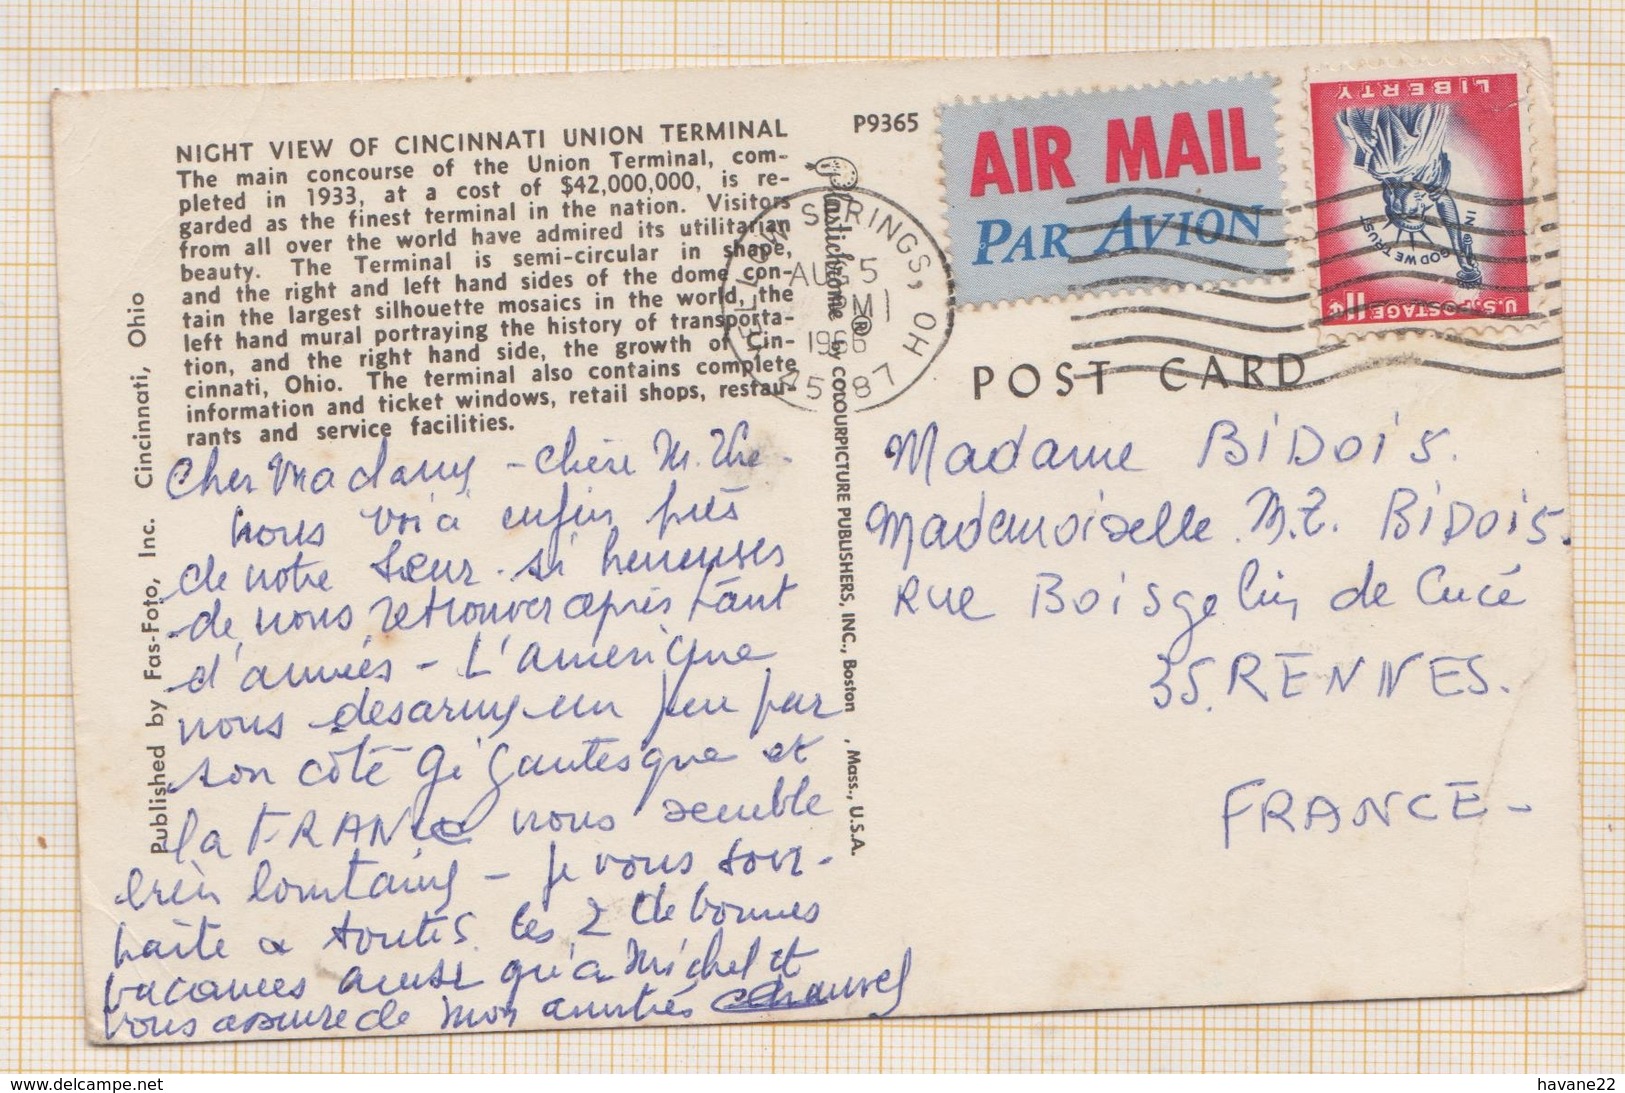 NIGHT VIEW OF CINCINNATI UNION TERMINAL
The main concourse of the Union Terminal, com-
pleted in 1933, at a cost of $42,000,000, is re-
garded as the finest terminal in the nation. Visitors
from all over the world have admired its utilitarian
beauty. The Terminal is semi-circular in shape,
and the right and left hand sides of the dome con-
tain the largest silhouette mosaics in the world, the
left hand mural portraying the history of transporta-
tion, and the right hand side, the growth of Cin-
cinnati, Ohio. The terminal also contains complete
information and ticket windows, retail shops, restau-
rants and service facilities.
P9365
Published by Fas-Foto, Inc. Cincinnati, Ohio
Plastichrome ® by COLOURPICTURE PUBLISHERS, INC., Boston , Mass., U.S.A.
SPRINGS, OH
AUG 5
PM
1966
45387
AIR MAIL
PAR AVION
LIBERTY
IN GOD WE TRUST
U.S. POSTAGE
11¢
POST CARD
Cher Madame - chère M. Thé.
nous voià enfin près
de notre sœur. si heureuses
de nous retrouver après tant
d'années - L'amérique
nous désarme un peu par
son côté gigantesque et
la FRANCE nous semble
bien lointaine - je vous sou-
haite à toutes les 2 de bonnes
vacances ainsi qu'à Michel et
vous assure de mon amitiés
Madame BiDoiS.
Mademoiselle M.T. BiDoiS.
Rue Boisgelin de Cucé
35. RENNES.
FRANCE -
havane22